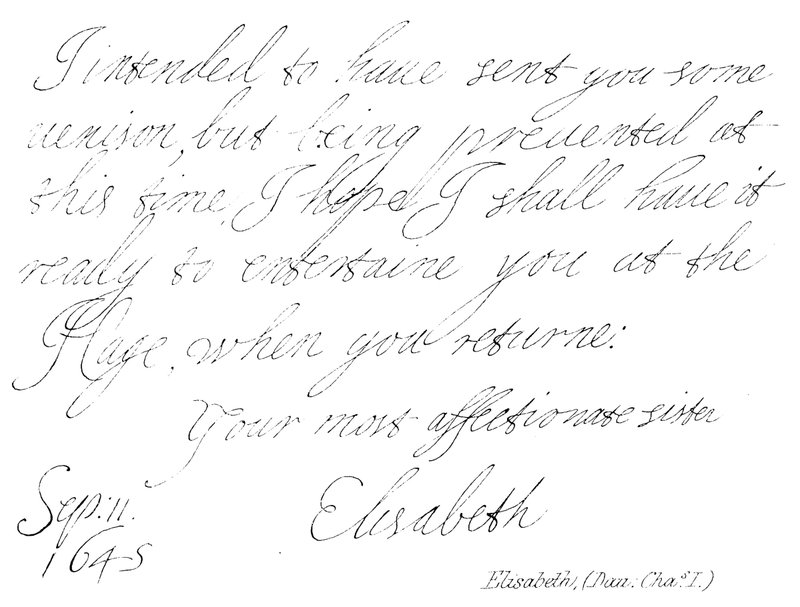 I intended to haue sent you some
uenison, but being preuented at
this time, I hope I shall haue it
ready to entertaine you at the
Hage, when you returne:
Your most affectionate sister
Sep: 11. Elisabeth
1645
Elisabeth, (Dau: Chaˢ I.)